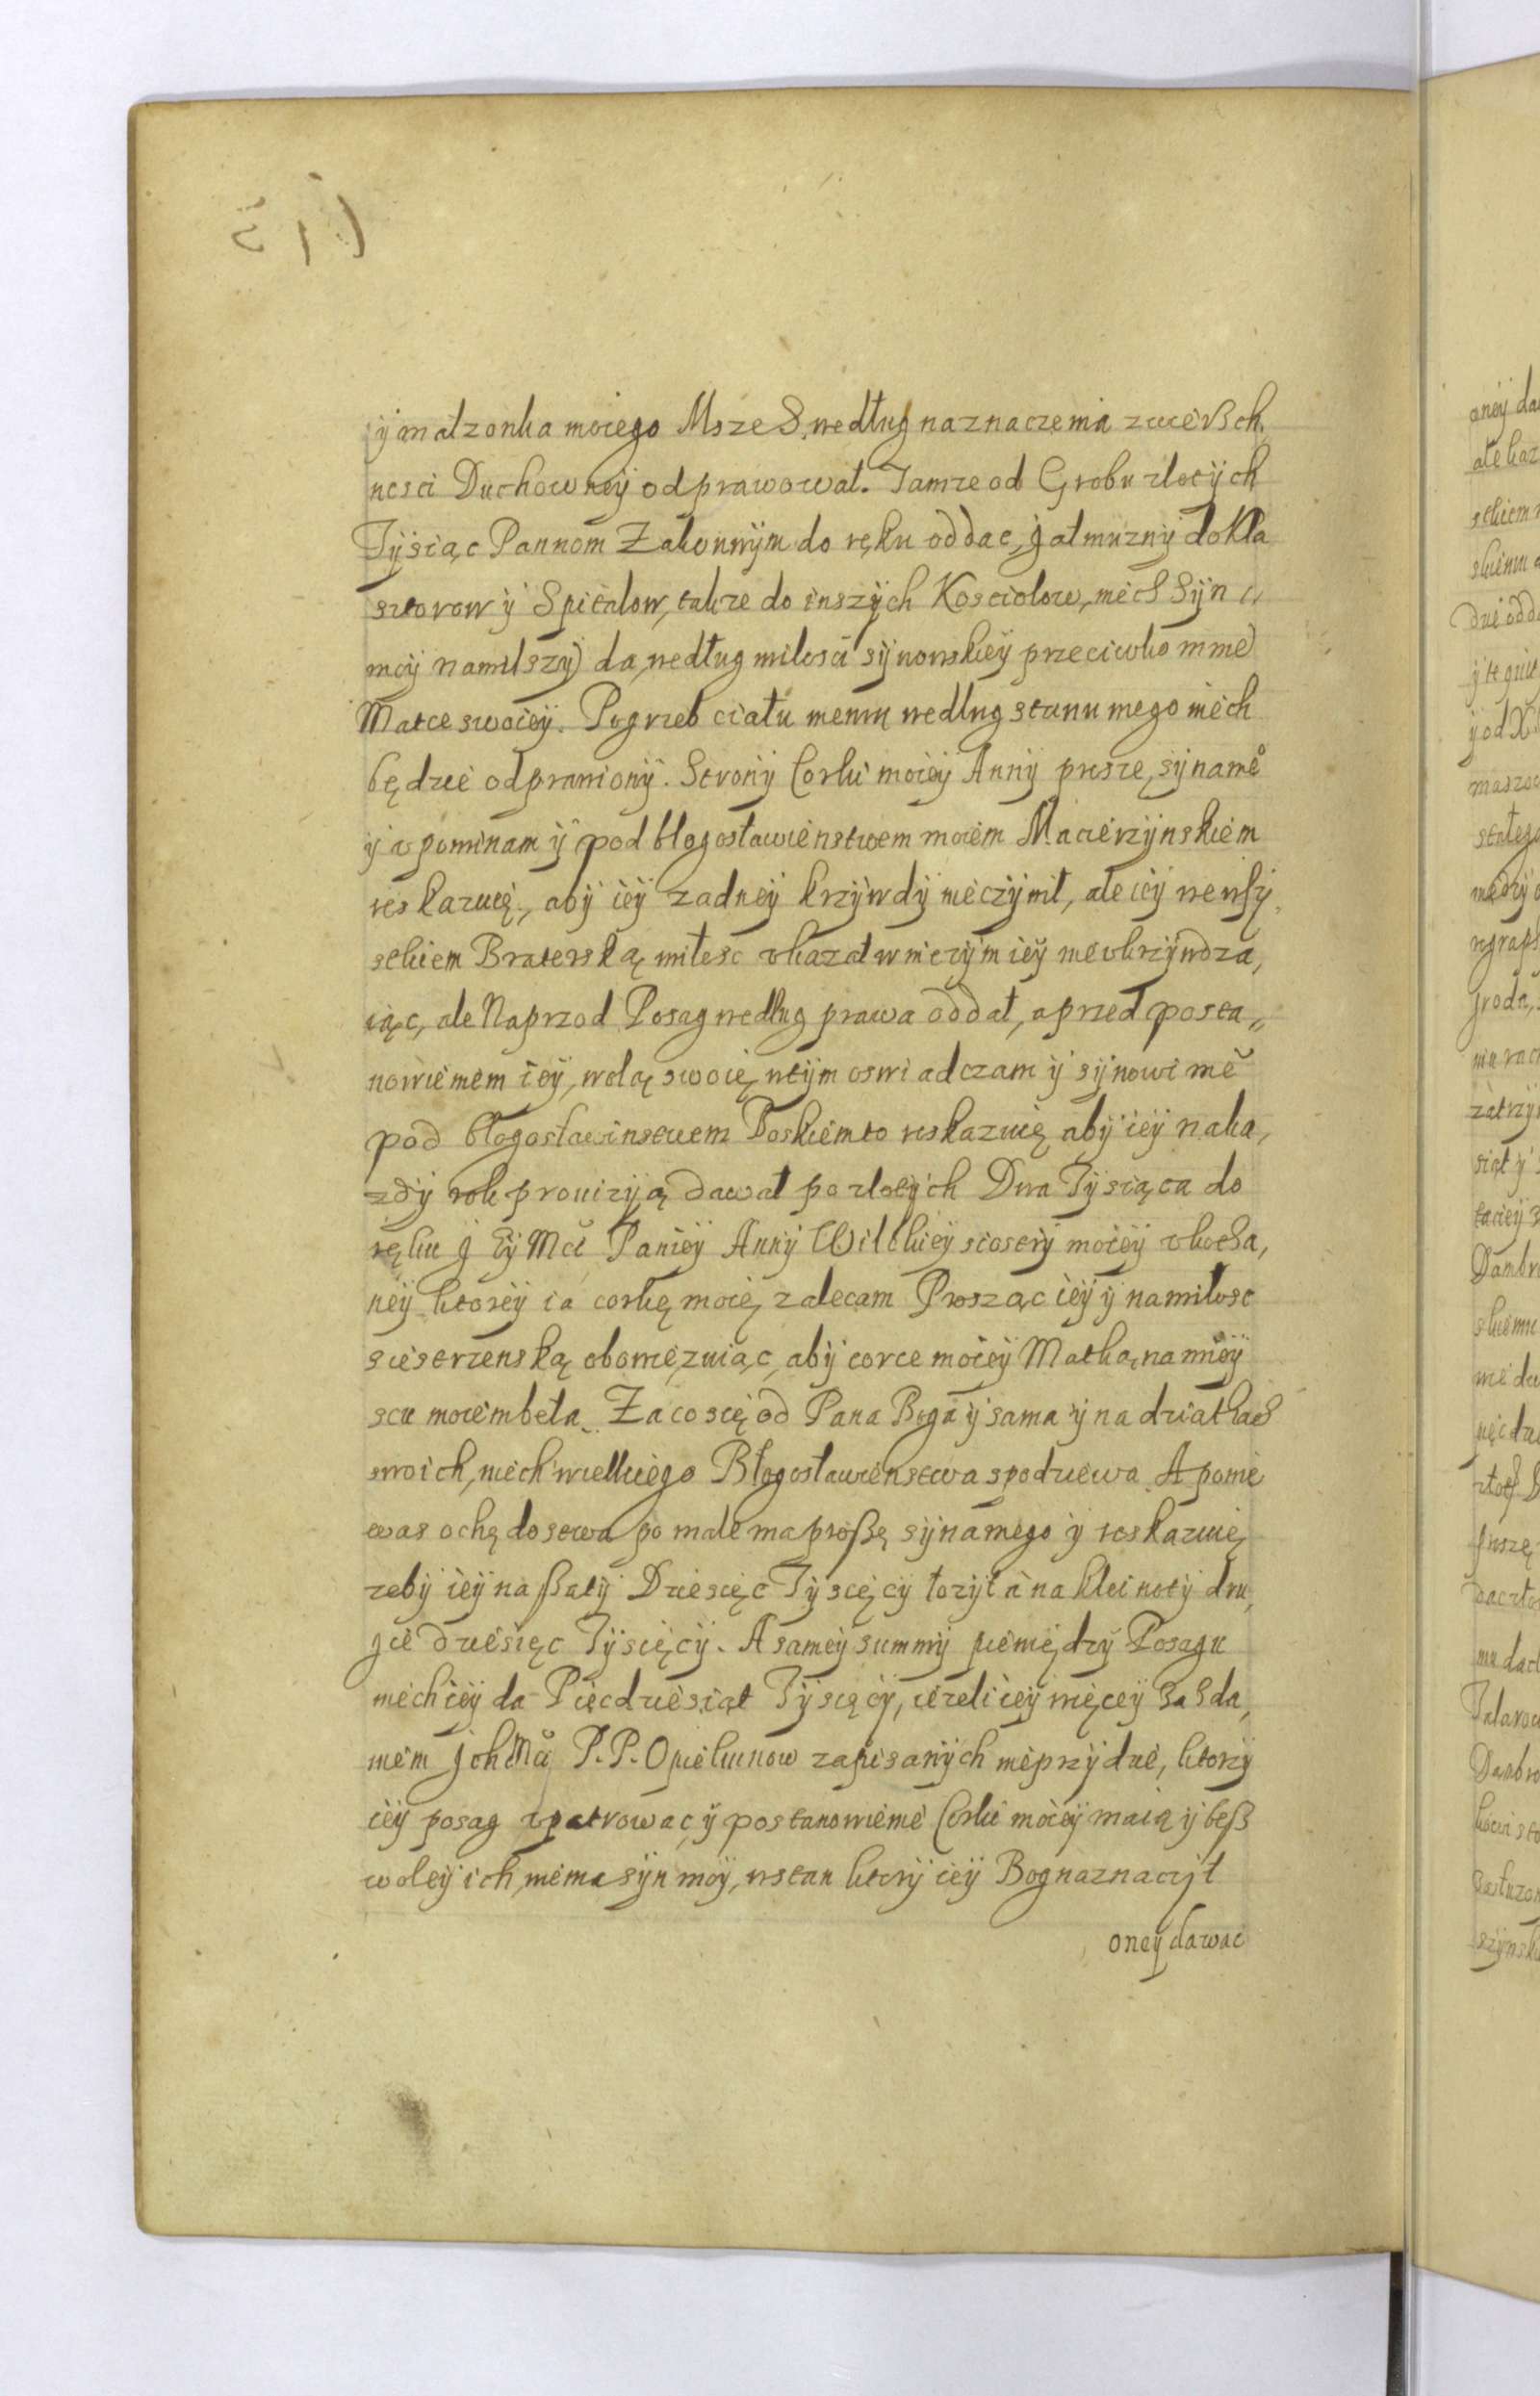 ÿ małzonka moiego Msze S. według naznaczenia zwierßch,
nosci Duchowneÿ odprawował. Tamze od Grobu złotÿch
Tÿsiąc Pannom Zakonnÿm do ręku oddac, J ałmuznÿ do Kla
sztorow ÿ Spitalow, takze do inszÿch Kosciolow, niech Sÿn //
moÿ namilszÿ da, według milosci sÿnowskieÿ przeciwko mnie
Matce swoieÿ. Pogrzeb ciału memu według stanu mego niech
będzie odprawionÿ. Stronÿ Corki moieÿ Annÿ prosze, sÿna me°
ÿ vpominam ÿ pod błogosławienstwem moiem Macierzÿnskiem
roskazuię, abÿ ieÿ zadneÿ krzÿwdÿ nieczÿnił, ale ieÿ wewszÿ,
stkiem Braterską miłosc vkazał w niczÿm ieÿ nievkrzÿwdza,
iąc, ale Naprzod Posag według prawa oddał, a przed posta„
nowieniem ieÿ, wolą swoię wtÿm oswiadczam ÿ sÿnowi me
pod błogosławinstwem Boskiem to roskazuię abÿ ieÿ naka,
zdÿ rok prouizÿą dawał po złotÿch Dwa Tÿsiąca do
ręku J Eÿ Mci Panieÿ Annÿ Wilckieÿ siostrÿ moieÿ vkocha,
neÿ ktoreÿ ia corkę moię zalecam Prosząc ieÿ ÿ namiłosc
siestrzenską obowięzuiąc, abÿ corce moieÿ Matką na mieÿ
scu moiem beła. Za co się od Pana Boga ÿ sama ÿ na dziatkach
swoich, niech wielkiego Błogosławienstwa spodziewa. A ponie
waz ochędostwa po male ma proßę sÿna mego ÿ roskazuię
zebÿ ieÿ na ßatÿ Dziesięc Tÿsięcÿ łozÿł a na kleinotÿ dru,
gie dziesięc Tÿsięcÿ. A sameÿ summÿ pieniędzÿ Posagu
niech ieÿ da Pięcdziesiąt Tÿsięcÿ, iezeli ieÿ więceÿ za zda,
niem Jch Mci P. P. Opiekunow zapisanÿch nieprzÿdzie, ktorzÿ
ieÿ posag vpatrowac ÿ postanowienie Corki moieÿ maią ÿ beß
woleÿ ich, niema sÿn moÿ, wstan ktorÿ ieÿ Bog naznaczÿł
oneÿ dawac